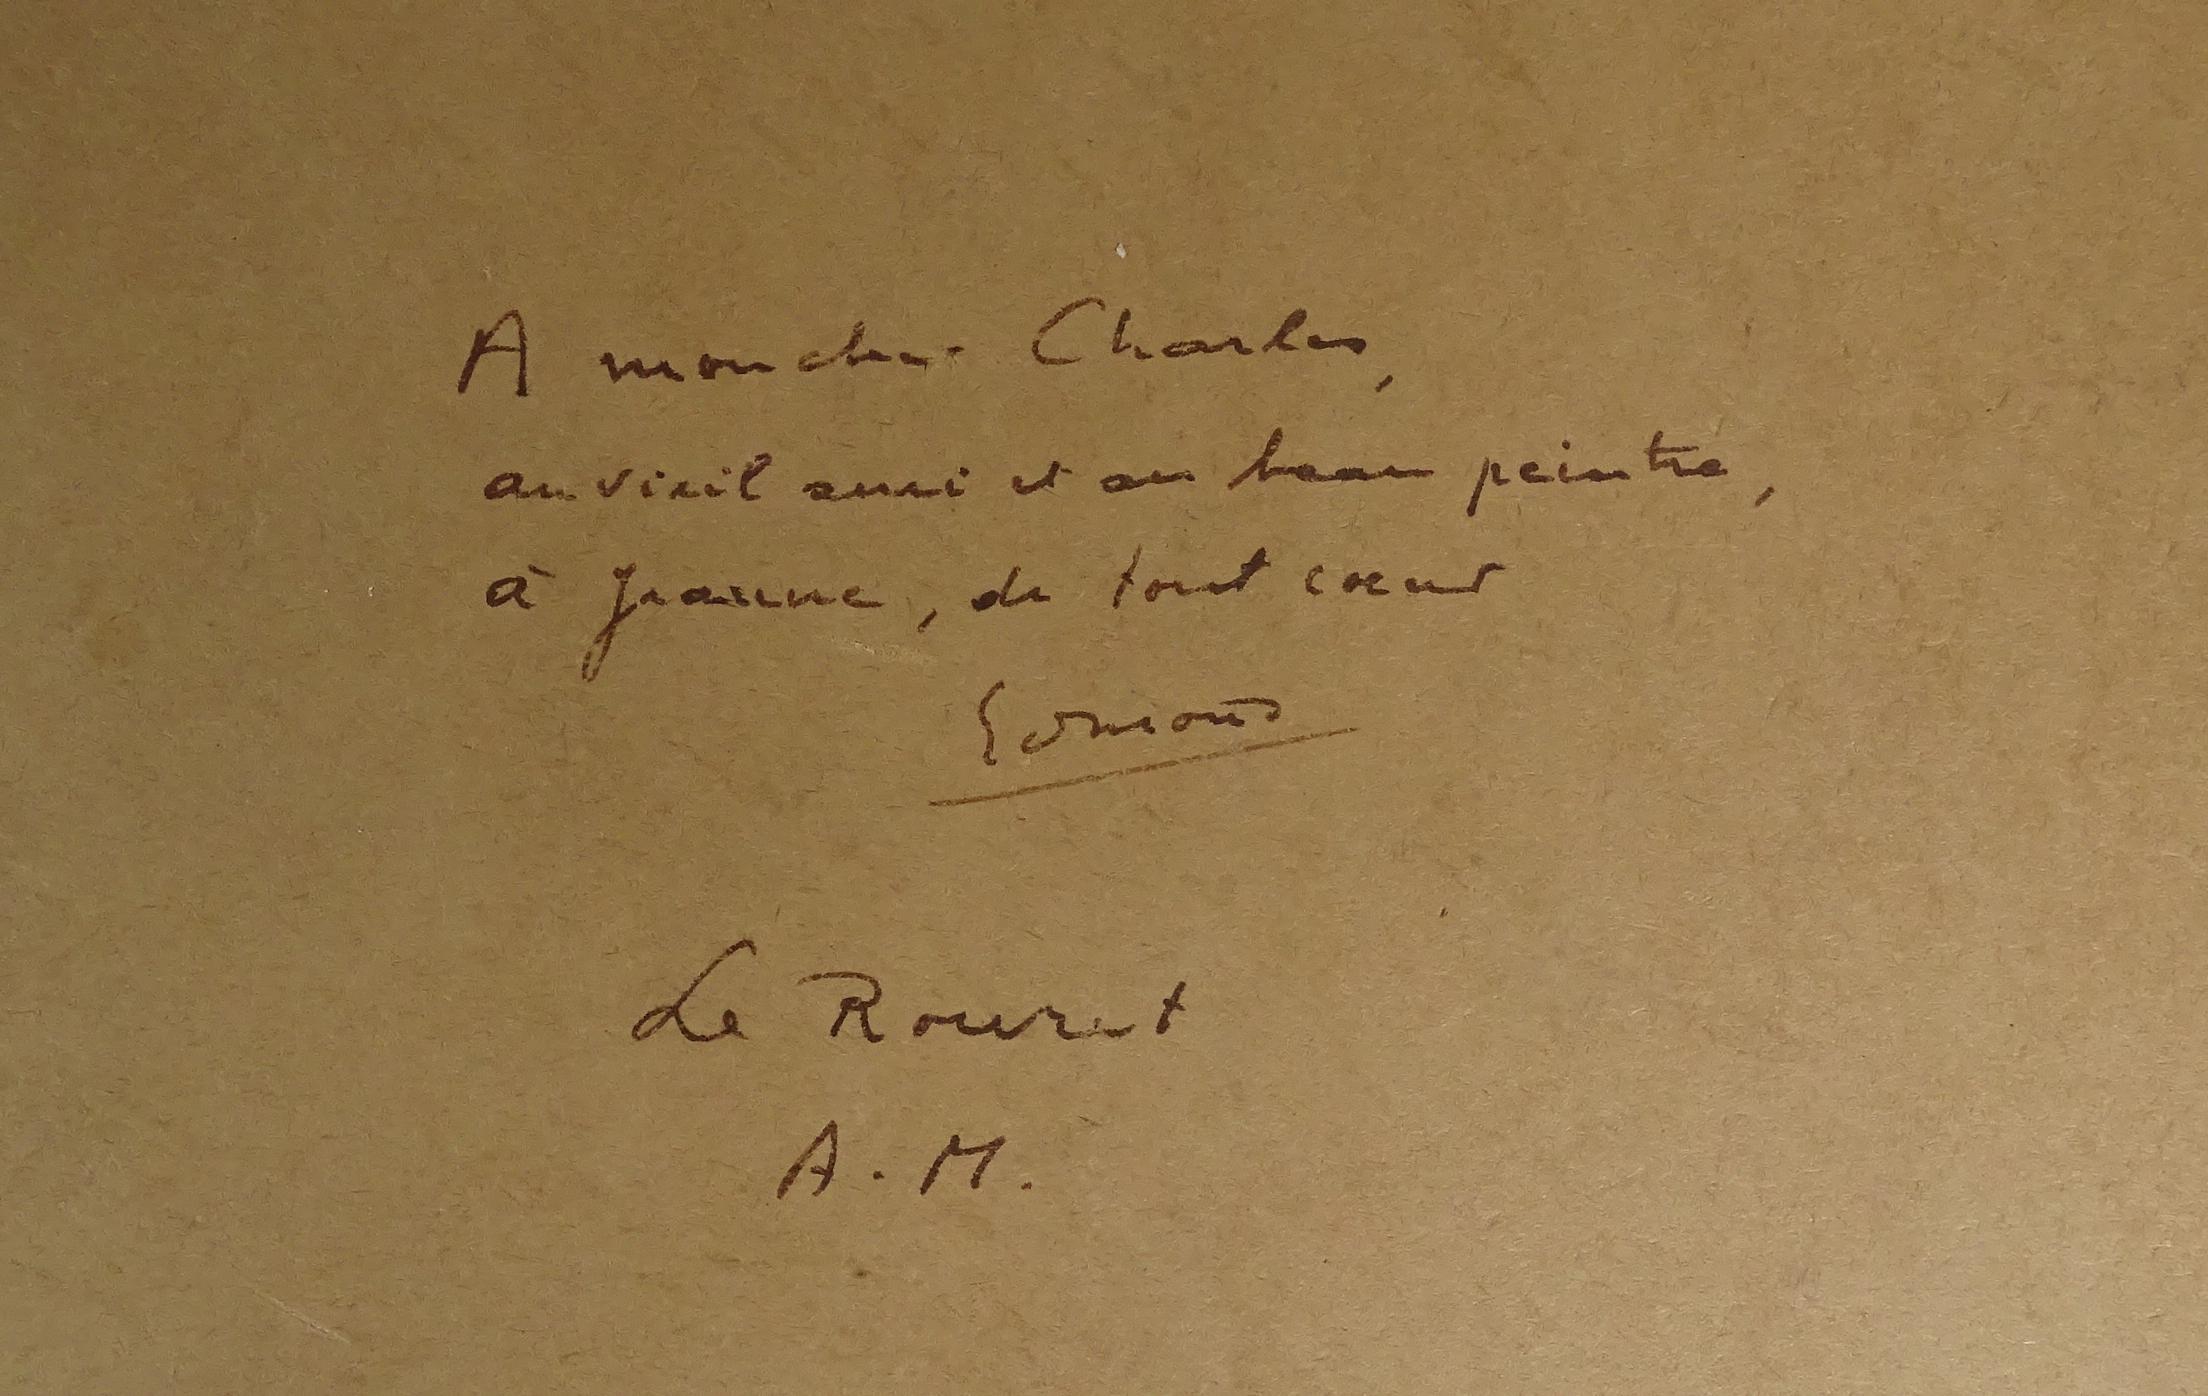 A mon cher Charles,
au vieil ami et au beau peintre,
à Jeanne, de tout cœur
Edmond
Le Rouret
A. M.